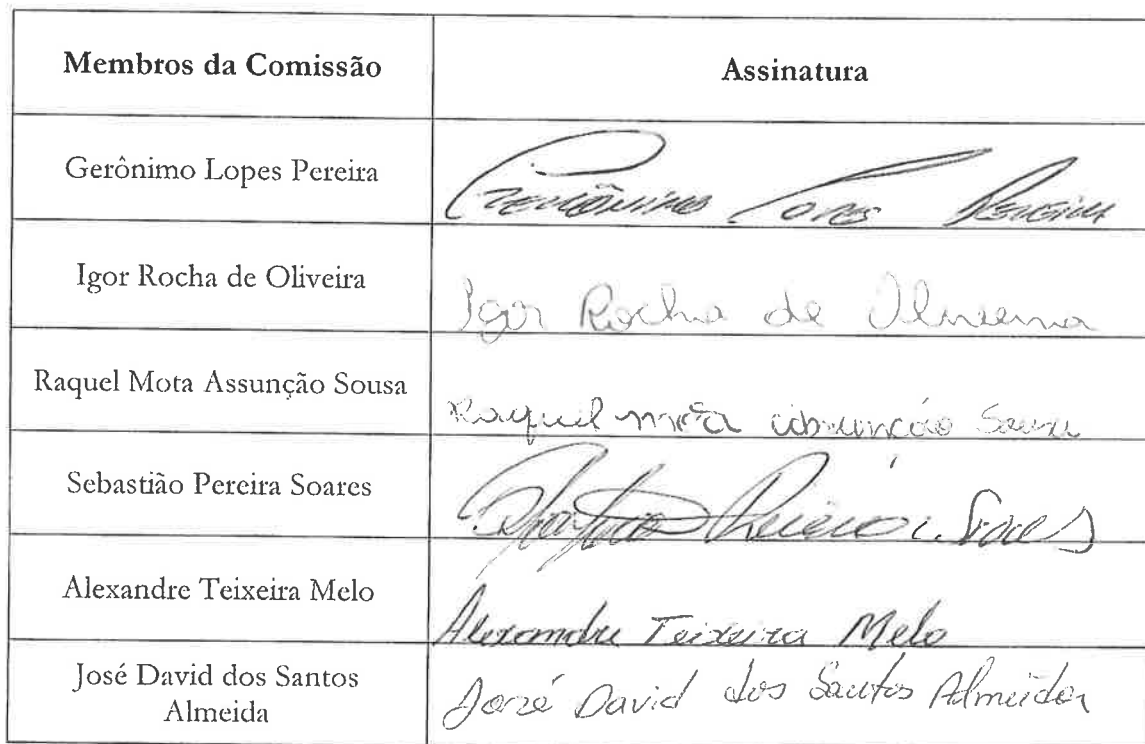 Membros da Comissão
Assinatura
Gerônimo Lopes Pereira
Gerônimo Lopes Pereira
Igor Rocha de Oliveira
Igor Rocha de Oliveira
Raquel Mota Assunção Sousa
Raquel mota assunção Sousa
Sebastião Pereira Soares
Sebastião Pereira Soares
Alexandre Teixeira Melo
Alexandre Teixeira Melo
José David dos Santos
Almeida
José David dos Santos Almeida